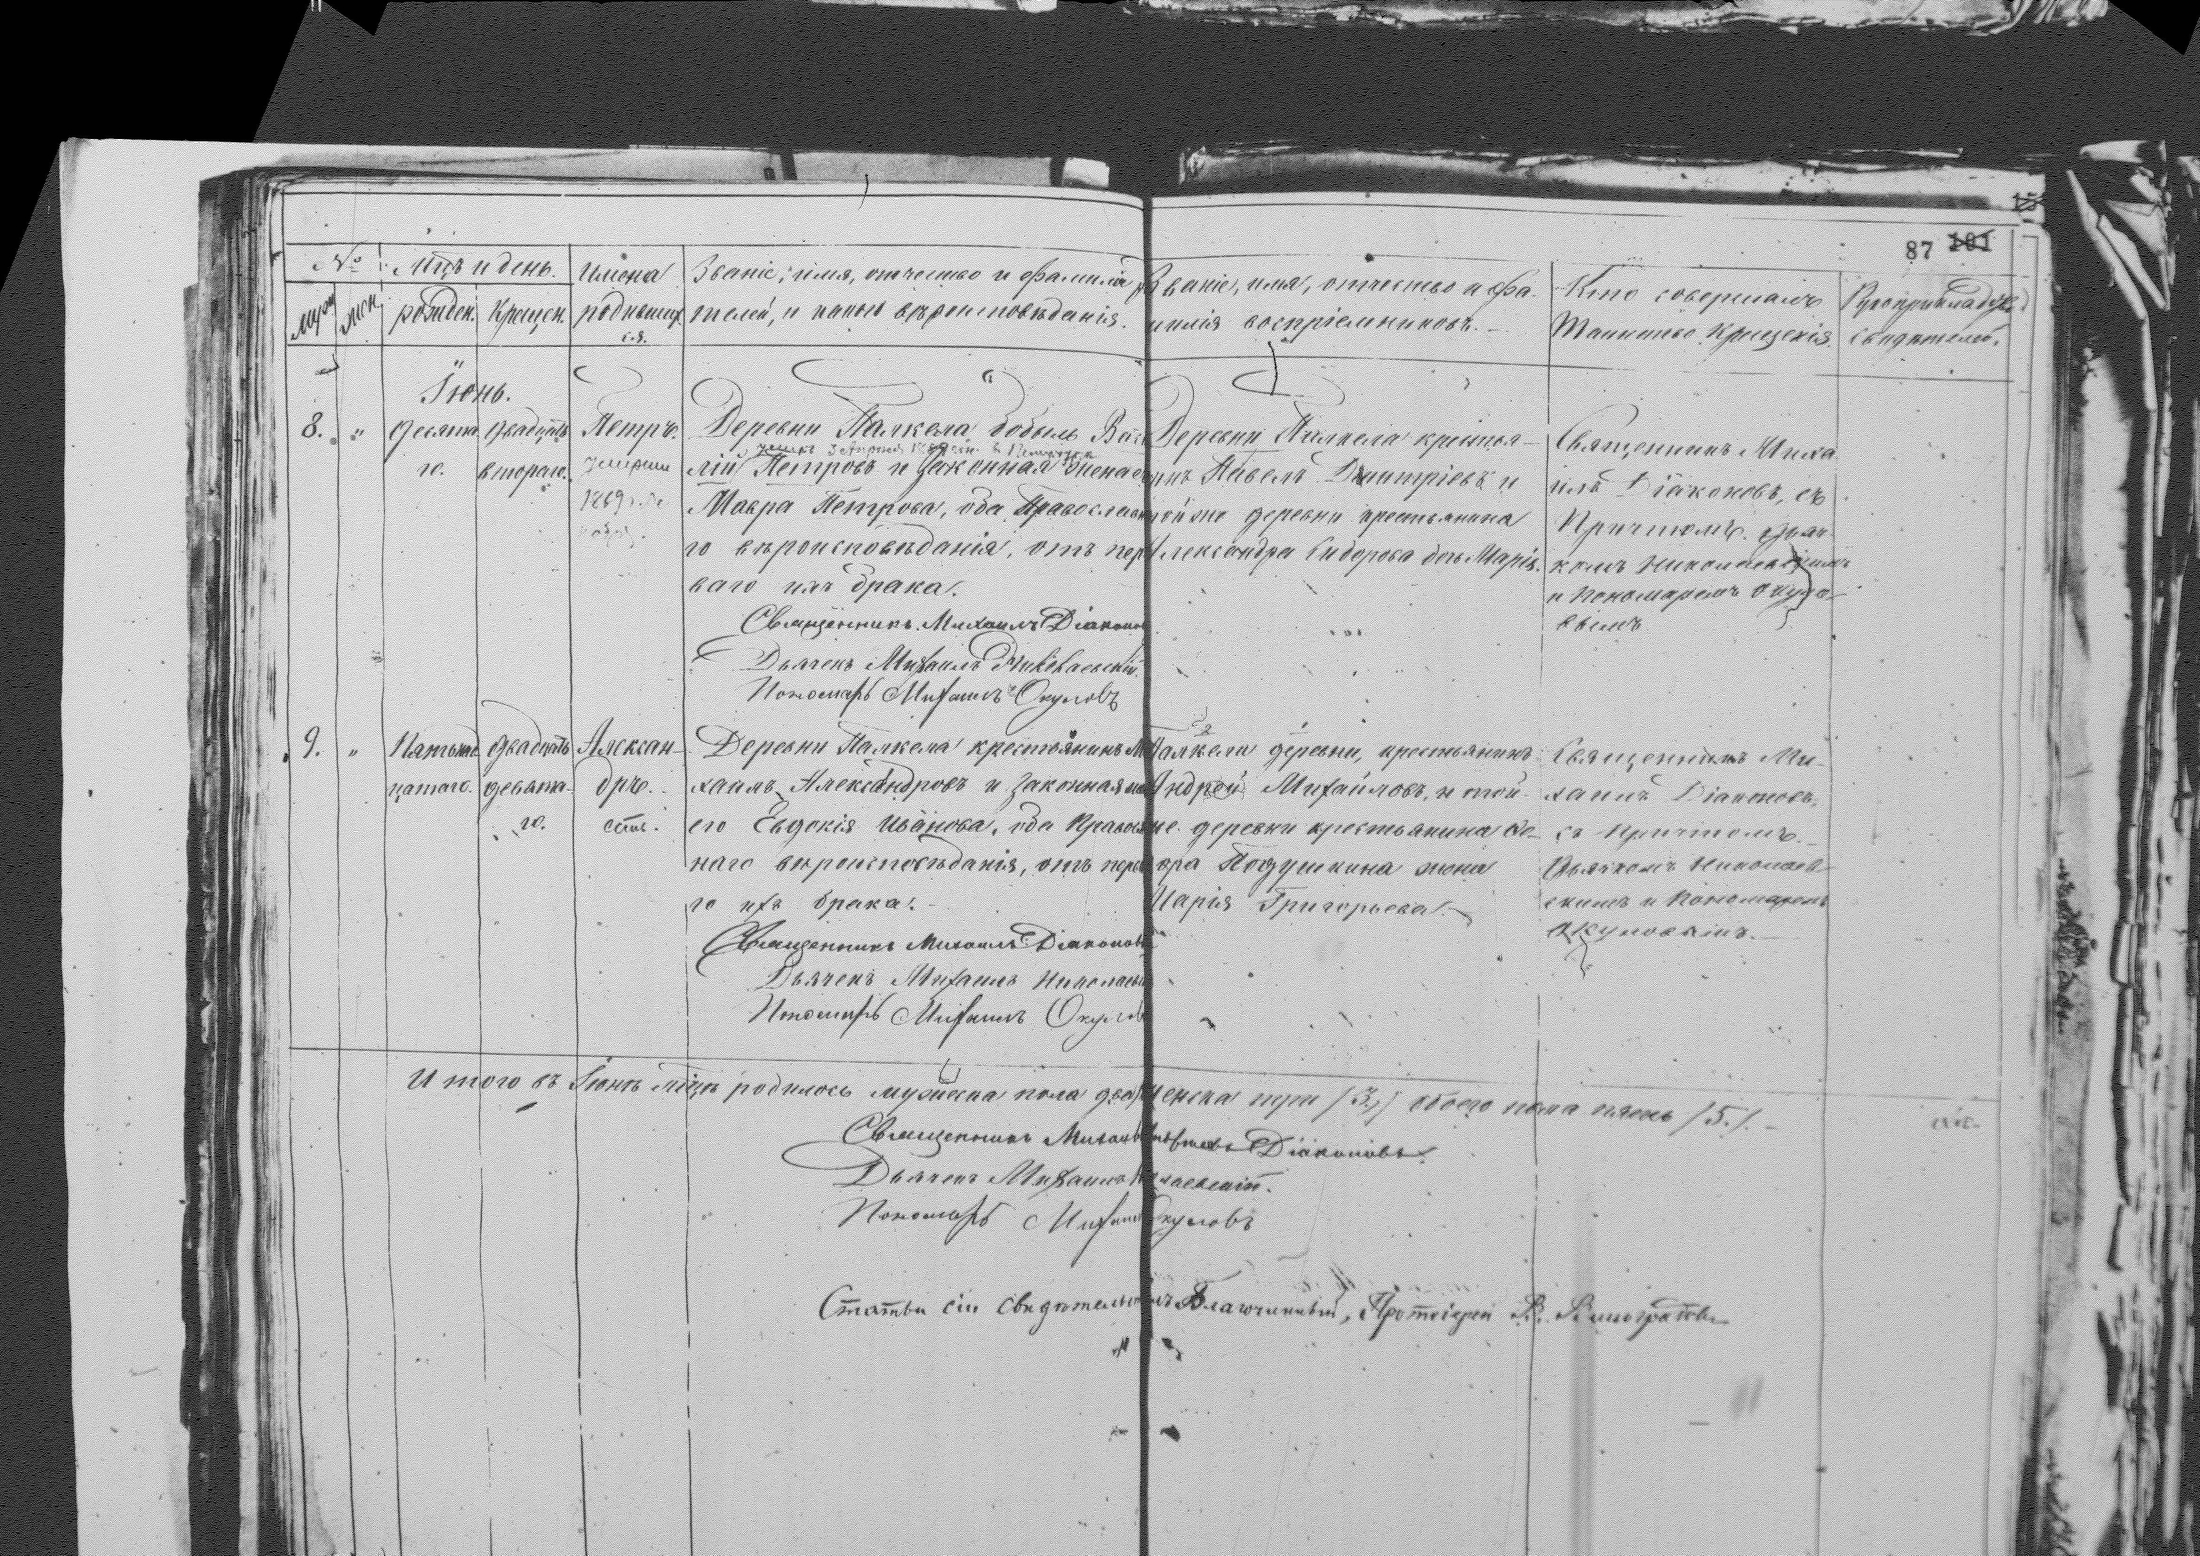 87 101
№ Мцъ и день. Имена Званіе, имя, отчество и фамилія ро
Званіе, имя, отчество и фа-
Кто совершалъ
Рукоприкладство
муж. жен. рожден. крещен. родивших
дителей, и какого вѣроисповѣданія.
милія воспріемниковъ.
Таинство крещенія.
свидѣтелей.
ся.
Іюнь.
8. „ Девята двадцать Петръ.
го. втораго.
умерши
1869
Деревни Палкела бобыль Васи
лій Петровъ и законная жена его
Мавра Петрова, оба Православна
го вѣроисповѣданія, отъ пер
ваго ихъ брака.
Священникъ Михаилъ Діаконов
Дьячекъ Михаилъ Николаевскій
Пономарь Михаилъ Окуловъ
Деревни Палкела крестья-
нинъ Павелъ Дмитріевъ и
той же деревни крестьянина
Александра Сидорова дочь Марія.
Священникъ Миха
илъ Діаконовъ, съ
Причтомъ. Дьяч
комъ Николаевскимъ
и Пономаремъ Окуло-
вымъ
9. „ Пятьнад двадцать Алексан-
цатаго. девята- дръ.
го.
Деревни Палкела крестьянинъ Ми
хаилъ Александровъ и законная жена
его Евдокія Иванова, оба Правосла
наго вѣроисповѣданія, отъ перва
го ихъ брака.
Священникъ Михаилъ Діаконовъ
Дьячекъ Михаилъ Николаевс
Пономарь Михаилъ Окулов
Палкели деревни, крестьянинъ
Андрей Михайловъ, и той
же деревни крестьянина Ѳе-
дора Подушкина жена
Марія Григорьева.
Священникъ Ми-
хаилъ Діаконовъ,
съ причтомъ.
Дьячкомъ Николаев
скимъ и Пономаремъ
Окуловымъ.
Итого въ Іюнѣ мцѣ родилось мужеска пола два, женска три /3,/ обоего пола пять /5./.
Священникъ Михаилъ Діаконовъ
Дьячекъ Михаилъ Николаевскій.
Пономарь Михаилъ Окуловъ
Статьи сіи свидѣтельствовалъ Благочинный, Протоіерей В. Виноградовъ